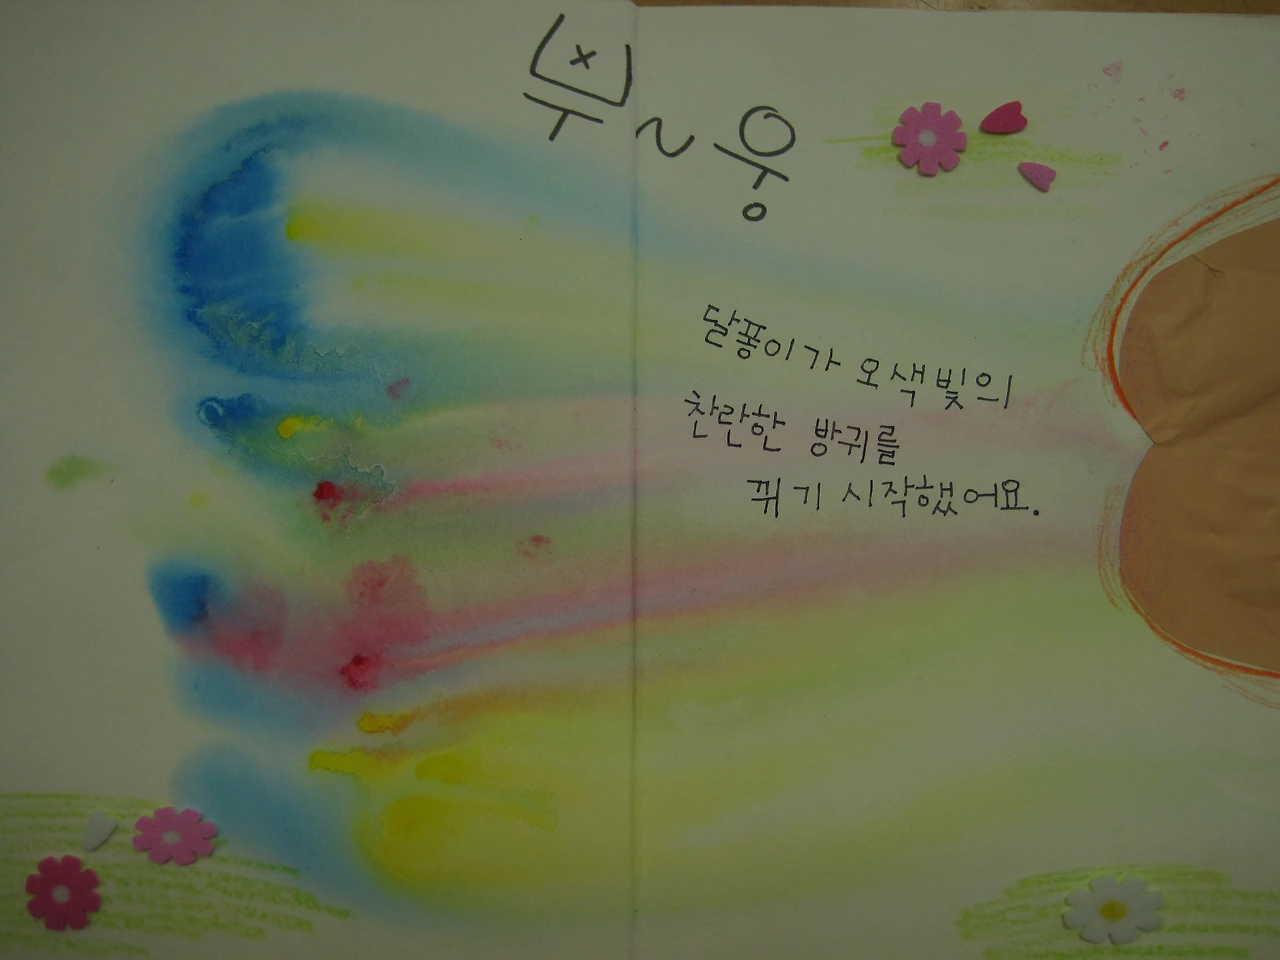 뿌~웅
달퐁이가 오색빛의
찬란한 방귀를
뀌기 시작했어요.